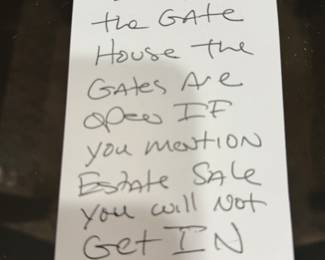 the GAte
House the
GAtes Are
open IF
you mention
EstAte SAle
you will Not
Get IN